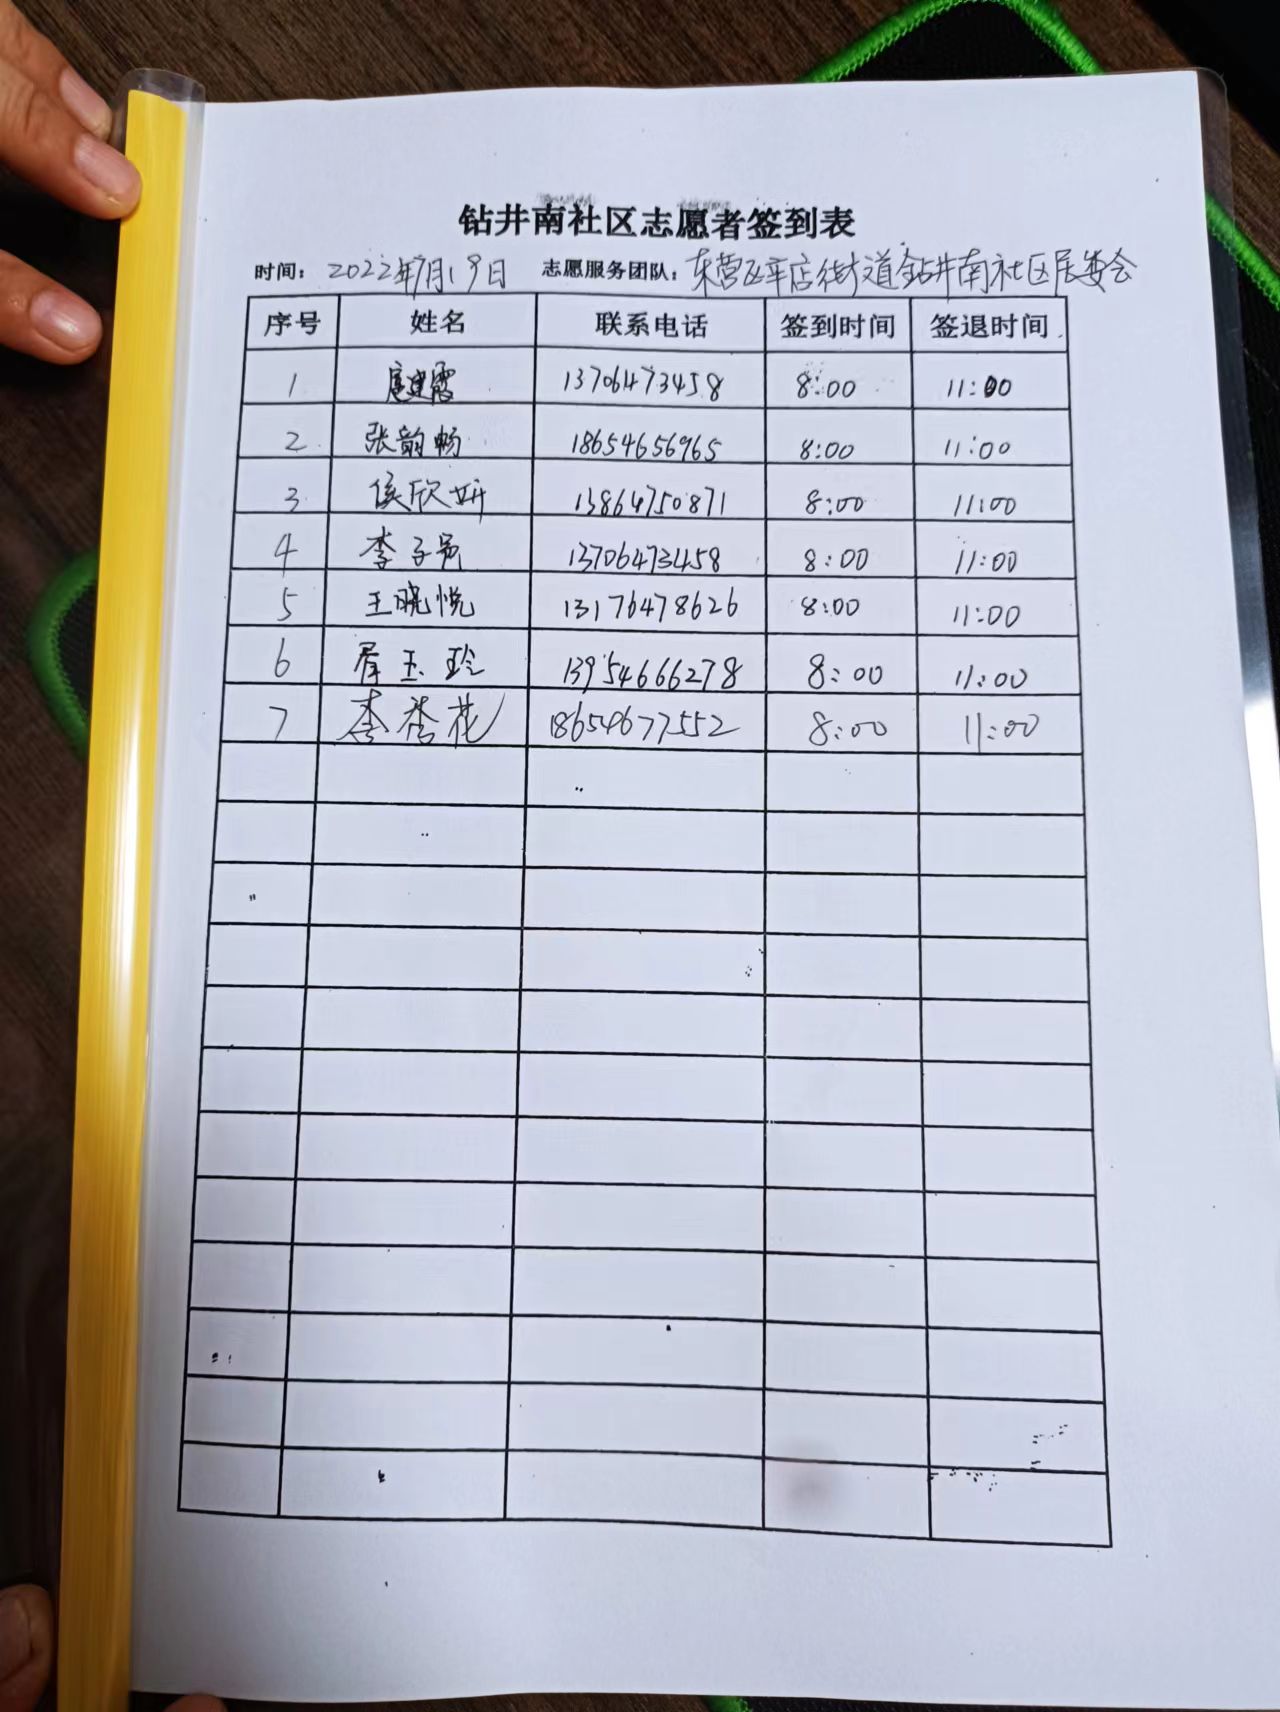 钻井南社区志愿者签到表
时间: 2022年7月19日 志愿服务团队: 东营区辛店街道钻井南社区居委会
序号 姓名 联系电话 签到时间 签退时间
1 建霞 13706473458 8:00 11:00
2 张韵畅 18654656965 8:00 11:00
3 侯欣妍 13864750871 8:00 11:00
4 李子 13706473458 8:00 11:00
5 王晓悦 13176478626 8:00 11:00
6 玉玲 13954666278 8:00 11:00
7 李秀花 18654677552 8:00 11:00